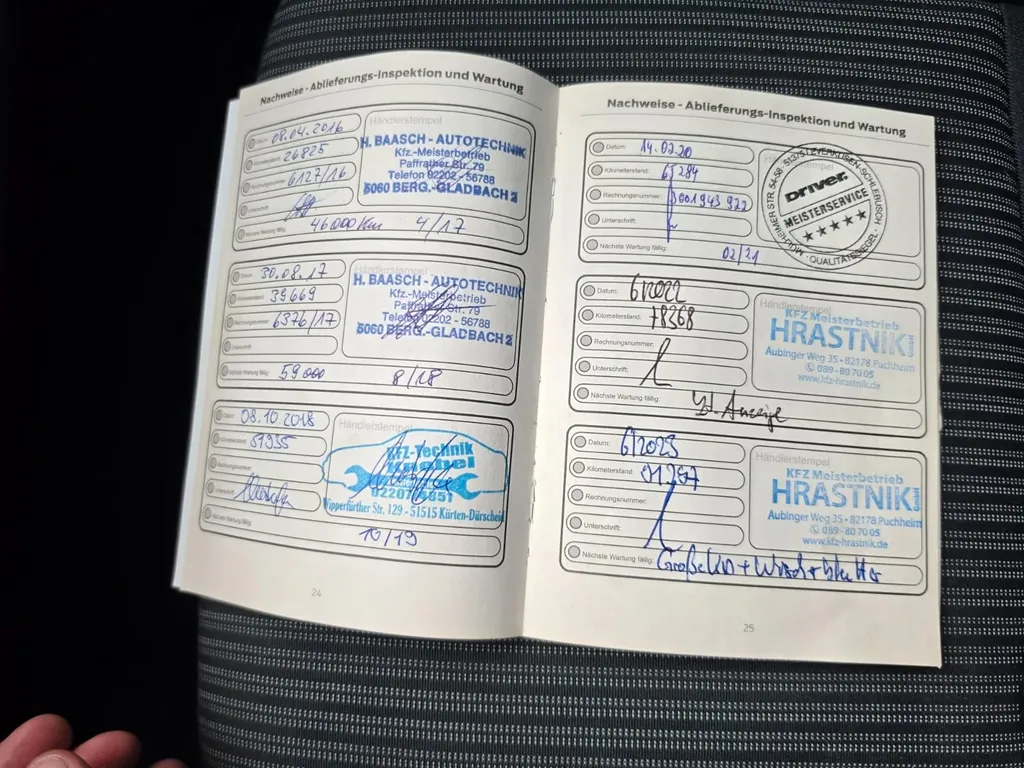 Nachweise - Ablieferungs-Inspektion und Wartung
Datum: 08.04.2016
Kilometerstand: 26825
Rechnungsnummer: 6127/16
Unterschrift:
Nächste Wartung fällig: 46000 Km 4/17
Händlerstempel
H. BAASCH - AUTOTECHNIK
Kfz.-Meisterbetrieb
Paffrather Str. 79
Telefon 02202 - 56788
5060 BERG.-GLADBACH 2
Datum: 30.08.17
Kilometerstand: 39669
Rechnungsnummer: 6376/17
Unterschrift:
Nächste Wartung fällig: 59000 8/18
Händlerstempel
H. BAASCH - AUTOTECHNIK
Kfz.-Meisterbetrieb
Paffrather Str. 79
Telefon 02202 - 56788
5060 BERG.-GLADBACH 2
Datum: 08.10.2018
Kilometerstand: 51935
Rechnungsnummer:
Unterschrift:
Nächste Wartung fällig:
10/19
Händlerstempel
KFZ-Technik
Knebel
Wipperfürther Str. 129 - 51515 Kürten-Dürscheid
24
Nachweise - Ablieferungs-Inspektion und Wartung
Datum: 14.02.20
Kilometerstand: 65284
Rechnungsnummer:
Unterschrift:
Nächste Wartung fällig: 02/21
DRIVER
MEISTERSERVICE
MÜLHEIMER STR. 54-58 · 51375 LEVERKUSEN-SCHLEBUSCH
· QUALITÄTSSIEGEL ·
Datum: 6/2022
Kilometerstand: 78368
Rechnungsnummer:
Unterschrift:
Nächste Wartung fällig: Anzeige
Händlerstempel
KFZ Meisterbetrieb
HRASTNIK GmbH
Aubinger Weg 35 - 82178 Puchheim
089 - 80 70 05
www.kfz-hrastnik.de
Datum: 6/2023
Kilometerstand:
Rechnungsnummer:
Unterschrift:
Nächste Wartung fällig: Große KD +
Händlerstempel
KFZ Meisterbetrieb
HRASTNIK GmbH
Aubinger Weg 35 - 82178 Puchheim
089 - 80 70 05
www.kfz-hrastnik.de
25